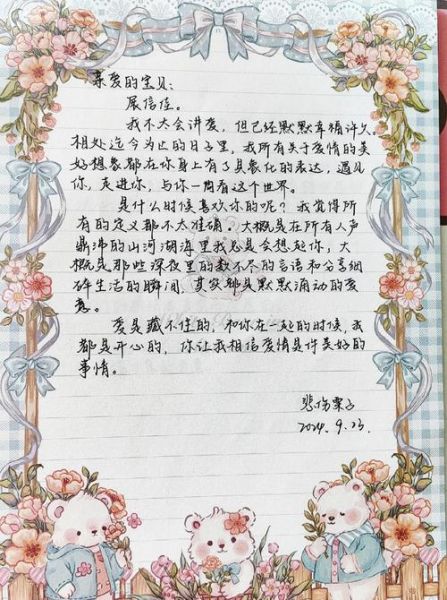 亲爱的宝贝:
展信佳。
我不太会讲爱，但已经默默幸福许久。
相处迄今为止的日子里，我所有关于爱情的美
好想象都在你身上有了具象化的表达，遇见
你，走进你，与你一同看这个世界。
是什么时候喜欢你的呢？我觉得所
有的定义都不太准确。大概是在所有人声
鼎沸的山河湖海里我总是会想起你，大
概是那些深夜里的数不尽的言语和分享细
碎生活的瞬间，其实都是默默涌动的爱
意。
爱是藏不住的，和你在一起的时候，我
都是开心的，你让我相信爱情是件美好的
事情。
悲伤栗子
2024.9.23.